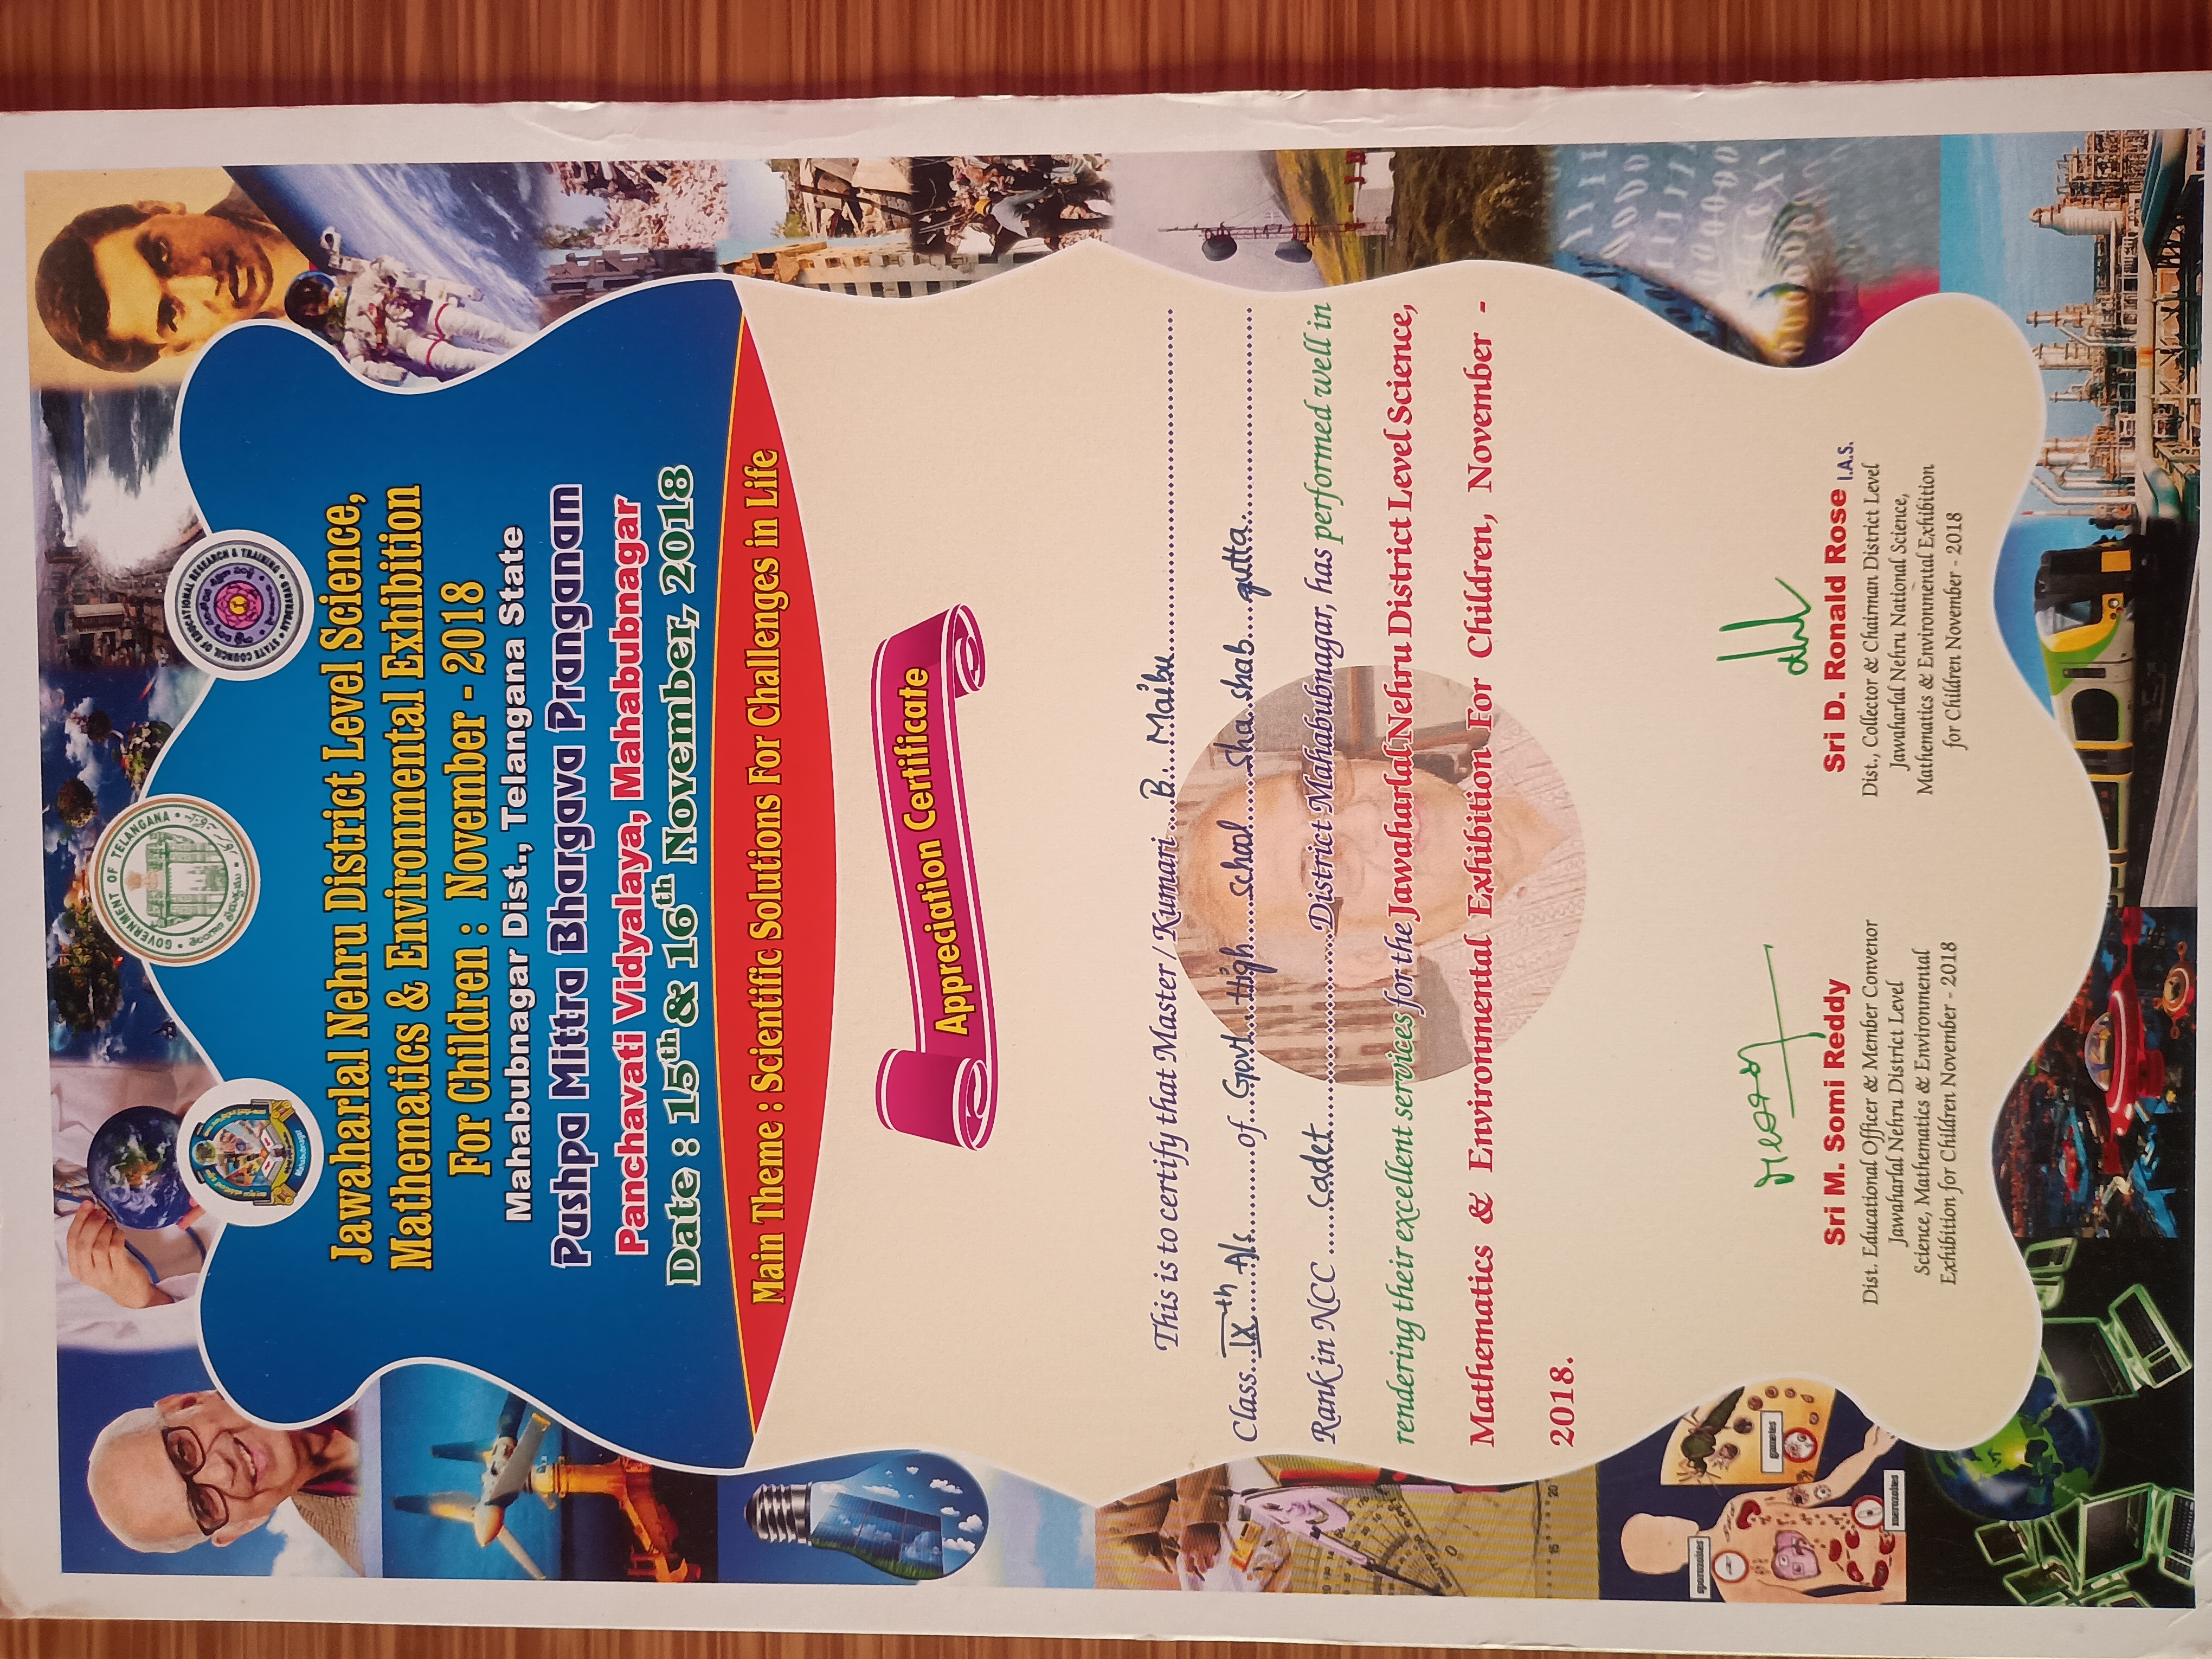 GOVERNMENT OF TELANGANA
Mahabubnagar
STATE COUNCIL OF EDUCATIONAL RESEARCH & TRAINING
HYDERABAD
Jawaharlal Nehru District Level Science,
Mathematics & Environmental Exhibition
For Children : November - 2018
Mahabubnagar Dist., Telangana State
Pushpa Mittra Bhargava Pranganam
Panchavati Vidyalaya, Mahabubnagar
Date : 15th & 16th November, 2018
Main Theme : Scientific Solutions For Challenges in Life
Appreciation Certificate
This is to certify that Master / Kumari B. Maibu
Class IXth A/s of Govt. High school Sha shab gutta.
Rank in NCC cadet District Mahabubnagar, has performed well in
rendering their excellent services for the Jawaharlal Nehru District Level Science,
Mathematics & Environmental Exhibition For Children, November -
2018.
sporozoites
gametes
merozoites
Sri M. Somi Reddy
Dist. Educational Officer & Member Convenor
Jawaharlal Nehru District Level
Science, Mathematics & Environmental
Exhibition for Children November - 2018
Sri D. Ronald Rose I.A.S.
Dist., Collector & Chairman District Level
Jawaharlal Nehru National Science,
Mathematics & Environmental Exhibition
for Children November - 2018